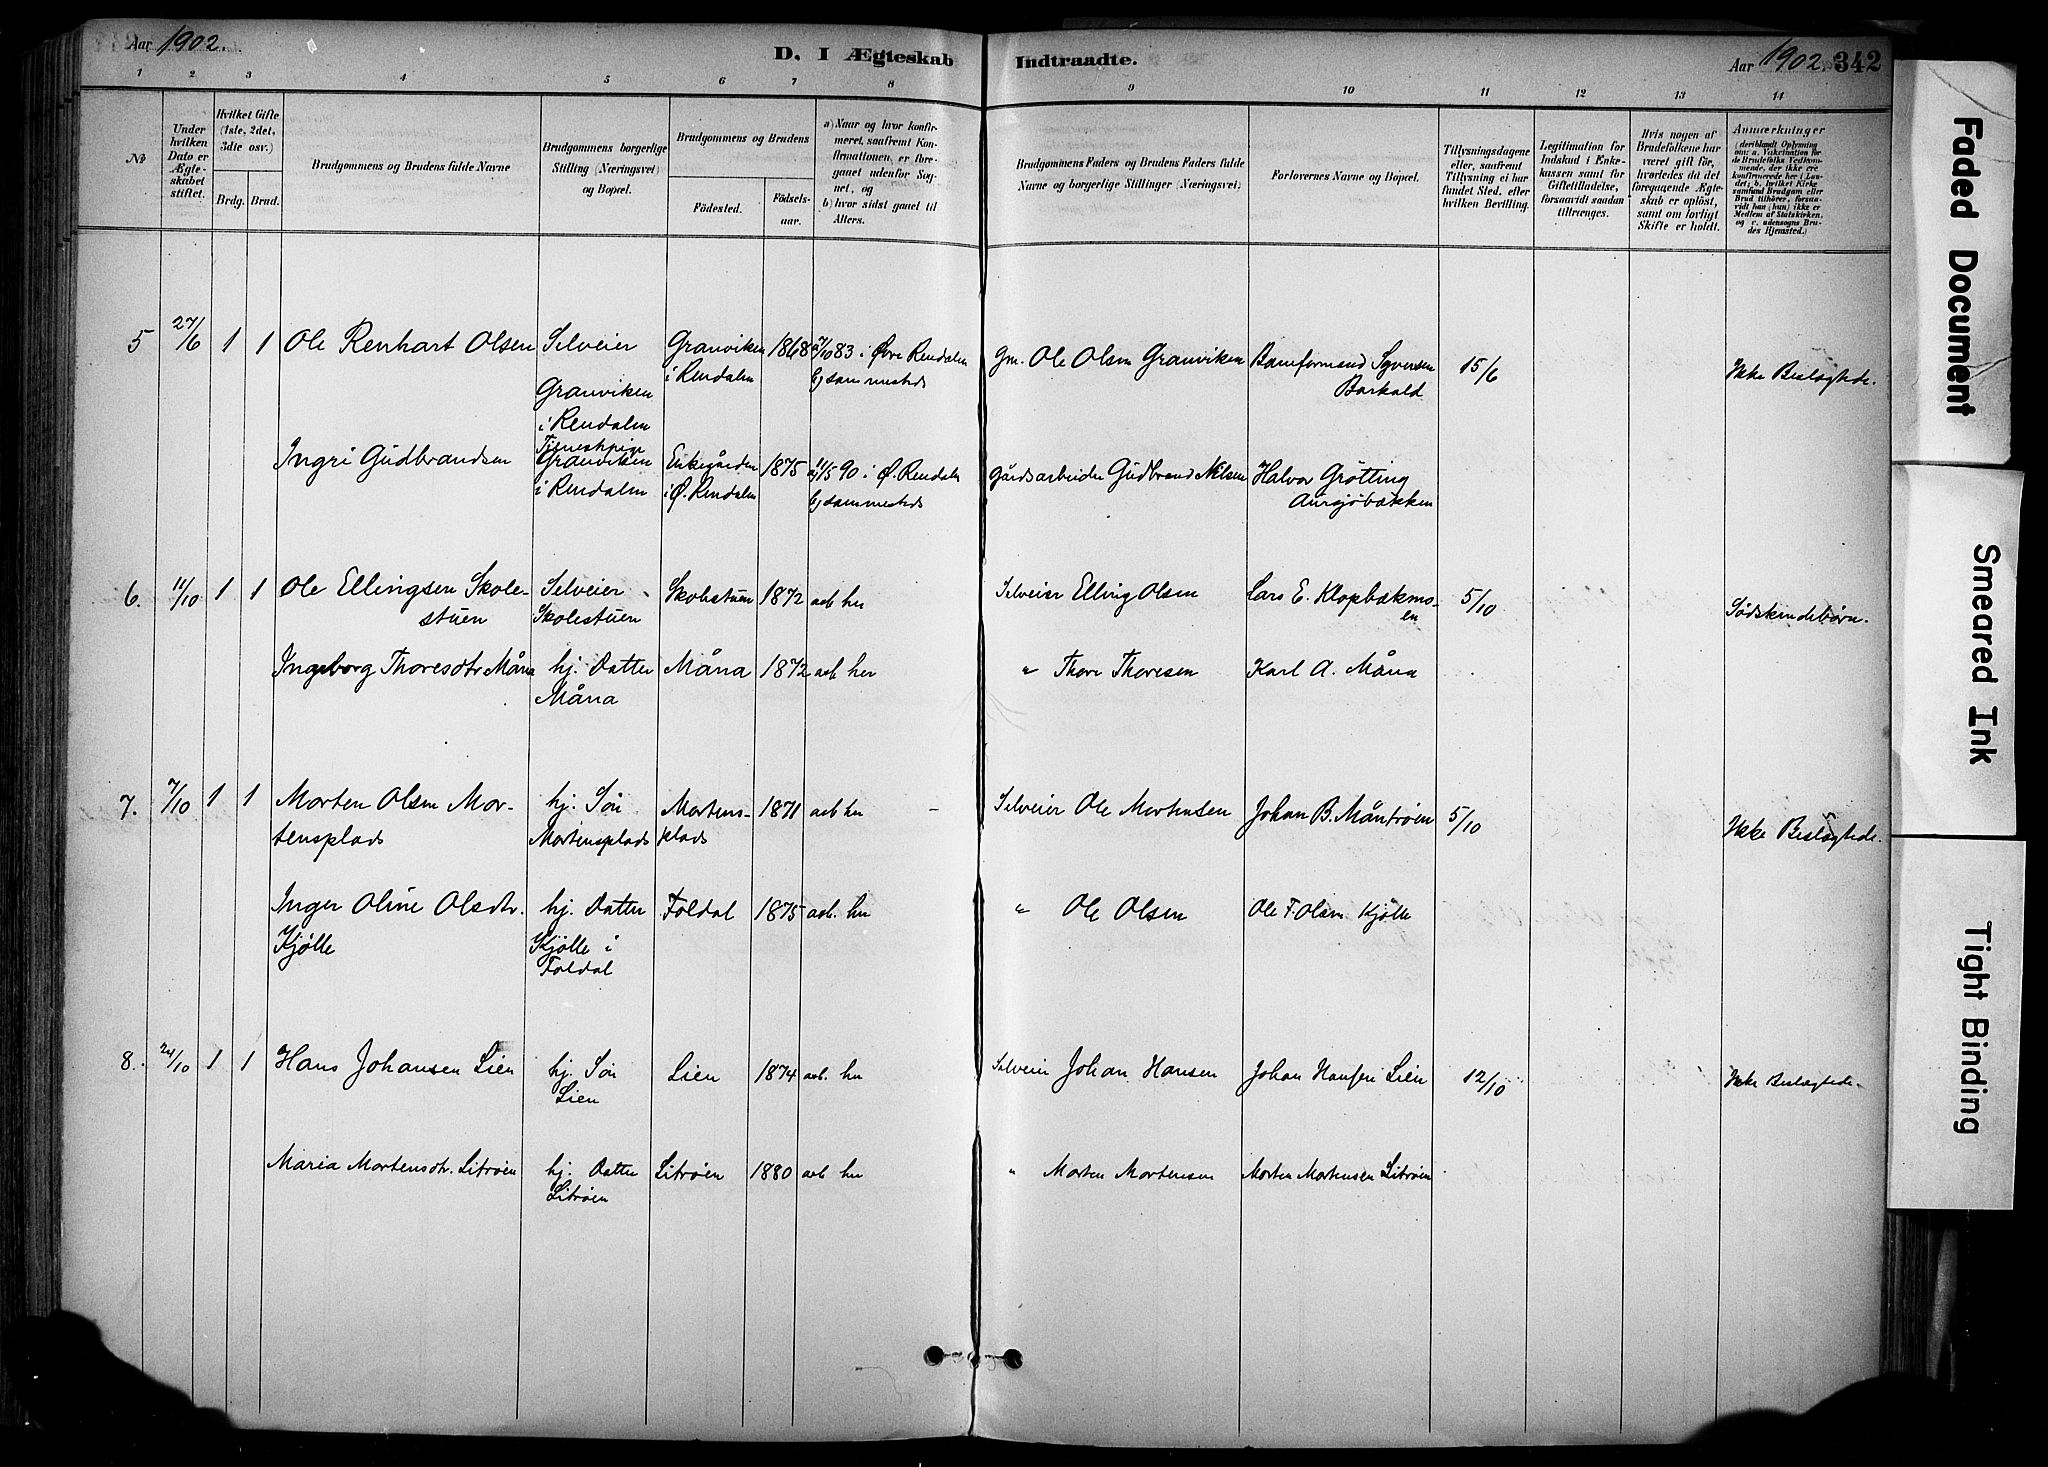 Aar 1902.
D. I Ægteskab Indtraadte.
Aar 1902. 342
1 2 3 4 5 6 7 8 9 10 11 12 13 14
No
Under hvilken Dato er Ægteskabet stiftet.
Hvilket Gifte (1ste, 2det, 3die osv.)
Brdg. Brud.
Brudgommens og Brudens fulde Navne
Brudgommens borgerlige Stilling (Næringsvei) og Bopæl.
Brudgommens og Brudens
Födested.
Födselsaar.
a) Naar og hvor konfirmeret, saafremt Konfirmationen er foregaaet udenfor Sognet, og
b) hvor sidst gaaet til Alters.
Brudgommens Faders og Brudens Faders fulde Navne og borgerlige Stillinger (Næringsvei)
Forlovernes Navne og Bopæl.
Tillysningsdagene eller, saafremt Tillysning ei har fundet Sted, efter hvilken Bevilling.
Legitimation for Indskud i Enkekassen samt for Giftetilladelse, forsaavidt saadan tiltrænges.
Hvis nogen af Brudefolkene har været gift för, hvorledes da det foregaaende Ægteskab er oplöst, samt om lovligt Skifte er holdt.
Anmærkninger
5 27/6 1 1 Ole Renhart Olsen Selveier Granviken 1868 83 i Øvre Rendalen Gm. Ole Olsen Granviken Syversen 15/6 Ikke Beslægtede.
i Rendalen b) sammesteds Barkald
Granviken
i Rendalen
Tjenestpige
Ingri Gudbrandsen Granviken 1875 11/5 90 i Ø. Rendalen Gårdsarbeider Gudbrand Nilsen Halvor Grötting
i Rendalen i Ø. Rendalen b) sammesteds Aursjöbækken
6. 11/10 1 1 Ole Ellingsen Skole- Selveier Skolestuen 1872 her Selveier Elling Olsen Lars E. Klopbækmo- 5/10 Södskendebörn.
stuen Skolestuen en
Ingeborg Thoresdtr Måna hj. Datter Måna 1872 her " Thore Thoresen Karl A. Måna
Måna
7. 7/10 1 1 Morten Olsen Mor- hj. Sön Mortens- 1871 her Selveier Ole Mortensen Johan B. Måntröen 5/10 Ikke Beslægtede.
tensplads Mortensplads plads
Inger Oline Olsdtr. hj. Datter Foldal 1875 her " Ole Olsen Ole F. Olsen Kjölle
Kjölle Kjölle i
Foldal
8. 24/10 1 1 Hans Johansen Lien hj. Sön Lien 1874 her Selveier Johan Hansen Johan Hansen Lien 12/10 Ikke Beslægtede.
Lien
Maria Mortensdtr. Litröen hj. Datter Litröen 1880 her " Morten Mortensen Morten Mortensen Litröen
Litröen
Faded Document
Smeared Ink
Tight Binding